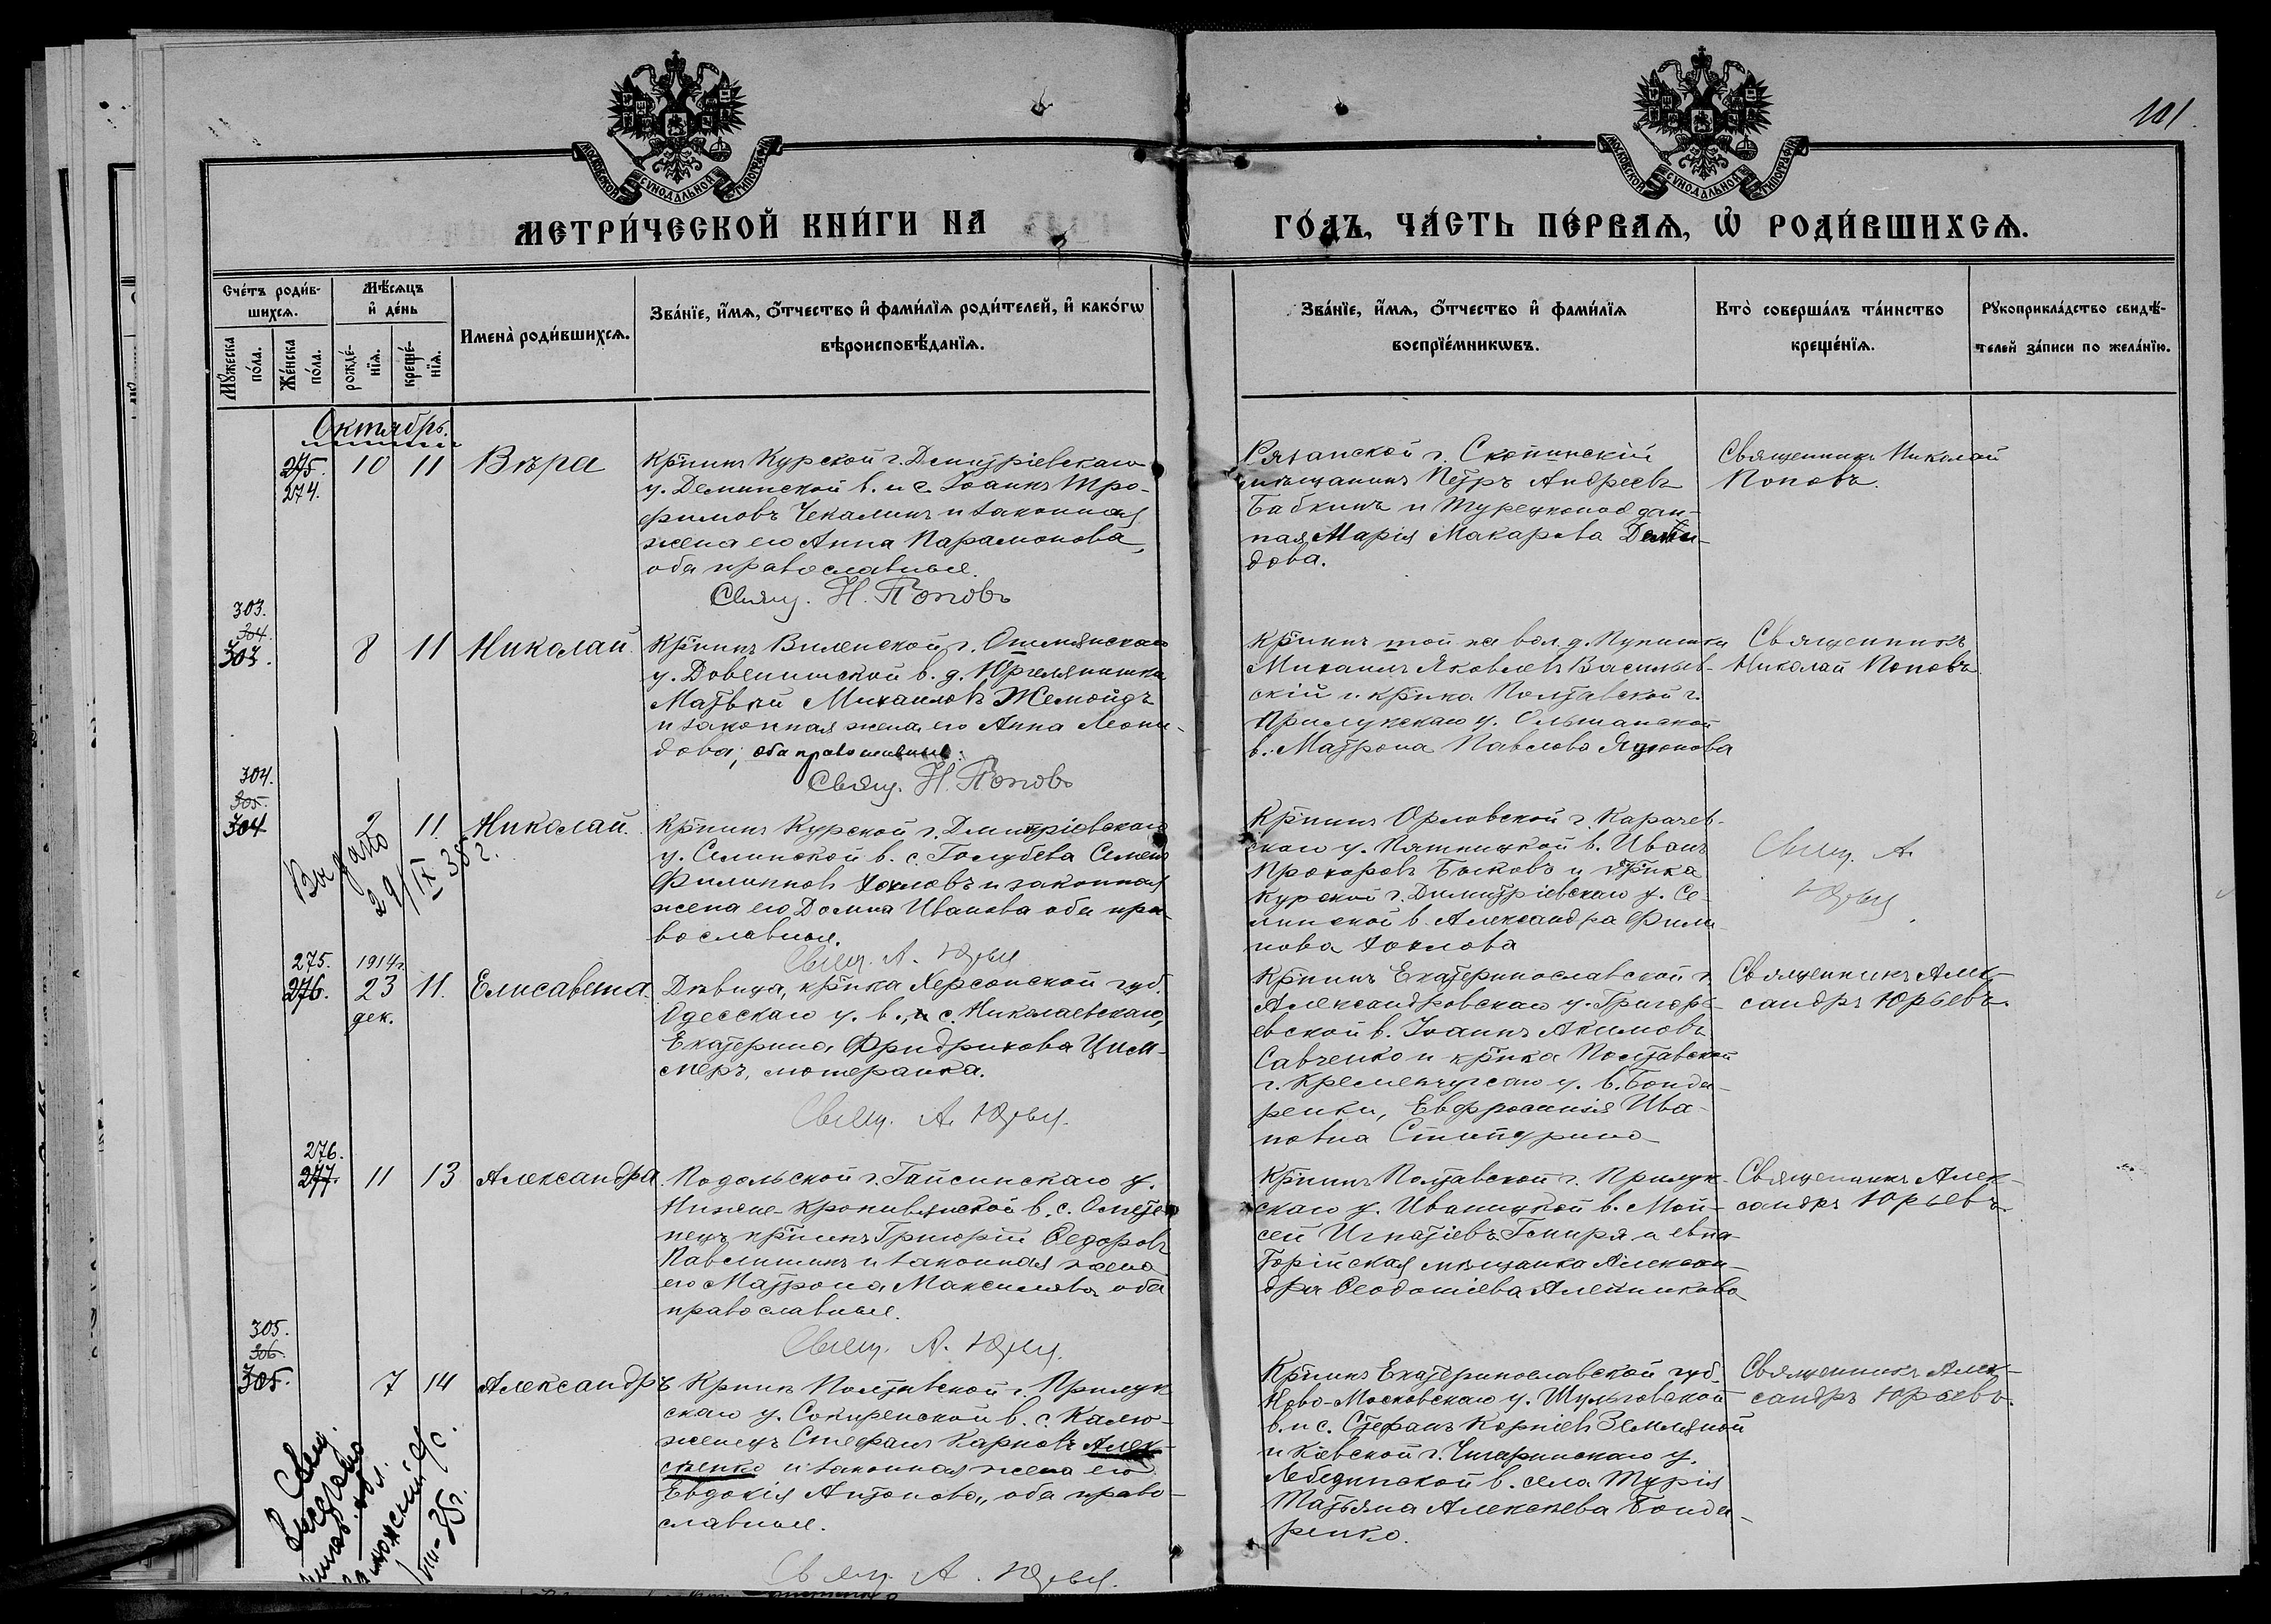 101
МОСКОВСКОЙ СѴНОДАЛЬНОЙ ТИПОГРАФІИ
МОСКОВСКОЙ СѴНОДАЛЬНОЙ ТИПОГРАФІИ
МЕТРИ́ЧЕСКОЙ КНИ́ГИ НА ГО́ДЪ, ЧА́СТЬ ПЕ́РВАѦ, Ѡ҆ РОДИ́ВШИХСѦ.
Сче́тъ роди́в-
шихсѧ.
Мѣ́сѧцъ
и҆ де́нь
Мꙋ́жеска
по́ла.
Же́нска
по́ла.
рожде́-
нїѧ.
креще́-
нїѧ.
Имена̀ роди́вшихсѧ.
Зва́нїе, и҆́мѧ, ѻ҆́тчество и҆ фами́лїѧ роди́телей, и҆ како́гѡ
вѣроисповѣ́данїѧ.
Зва́нїе, и҆́мѧ, ѻ҆́тчество и҆ фами́лїѧ
воспрїе́мникѡвъ.
Кто̀ соверша́лъ та́инство
креще́нїѧ.
Рꙋкоприкла́дство свидѣ́-
телей за́писи по жела́нїю.
Октябрь.
275. 10 11 Вѣра
274.
Кр̃нинъ Курской г. Дмитріевскаго
у. Деминской в. и с. Іоаннъ Тро-
фимовъ Чекалинъ и законная
жена его Анна Парамонова,
оба православные.
Свящ. Н. Поповъ
Рязанской г. Скопинскій
мѣщанинъ Петръ Андреевъ
Бабкинъ и Турецкоподдан-
ная Марія Макарова
дова.
Священникъ Николай
Поповъ.
303.
304.
303. 8 11 Николай.
Кр̃нинъ Виленской г. Ошмянскаго
у. Довенишской в. д. Юргелянишки
Матвѣй Михаиловъ Жемойдъ
и законная жена его Анна Леони-
дова, оба православные.
Свящ. Н. Поповъ
Кр̃нинъ той же вол. д.
Михаилъ Яковлевъ Васильев-
скій и кр̃нка Полтавской г.
Прилукскаго у. Ольшанской
в. Матрона Павлова
Священникъ
Николай Поповъ
304.
305.
304 9 11 Николай.
Выдано
29/IX 38 г.
Кр̃нинъ Курской г. Дмитріевскаго
у. Селинской в. с. Голубева Семенъ
Филипповъ Хохловъ и законная
жена его Домна Иванова оба пра-
вославные.
Свящ. А. Юрьев
Кр̃нинъ Орловской г. Карачев-
скаго у. Пятницкой в. Иванъ
Прохоровъ Быковъ и кр̃нка
Курской г. Димитріевскаго у. Се-
линской в. Александра Филип-
пова Хохлова
Свящ. А.
Юрьев
275. 1914 г.
276. 23 11. Елисавета.
дек.
Дѣвица, кр̃нка Херсонской губ.
Одесскаго у. в., и с. Николаевскаго,
Екатерина Фридрихова Цим-
меръ, лютеранка.
Свящ. А. Юрьев.
Кр̃нинъ Екатеринославской г.
Александровскаго у. Григорь-
евской в. Іоаннъ Акимовъ
Савченко и кр̃нка Полтавской
г. Кременчугскаго у. в. Бонда-
ренки, Евфросинія Ива-
новна
Священникъ Алек-
сандръ Юрьевъ.
276.
277. 11 13 Александра
Подольской г. Гайсинскаго у.
Нижне-Кропивянской в. с.
кр̃нинъ Григорій Ѳедоровъ
Павлишинъ и законная жена
его Матрона Максимова оба
православные.
Свящ. А. Юрьев.
Кр̃нинъ Полтавской г. Прилук-
скаго у. Иваницкой в. Мой-
сей Игнатіевъ Гмиря и евпа-
торійская мѣщанка Алексан-
дра Ѳеодосіева Алейникова
Священникъ Алек-
сандръ Юрьевъ
305.
306.
305. 7 14 Александръ
Кр̃нинъ Полтавской г. Прилук-
скаго у. Сокиренской в. с. Калю-
женецъ Стефанъ Карповъ Алек-
сѣенко и законная жена его
Евдокія Антонова, оба право-
славные.
Свящ. А. Юрьев.
Кр̃нинъ Екатеринославской губ.
Ново-Московскаго у. Шульговской
в. и с. Стефанъ Корніевъ Земляной
и Кіевской г. Чигиринскаго у.
Лебединской в. села Турія
Татьяна Алексѣева Бонда-
ренко.
Священникъ Алек-
сандръ Юрьевъ.